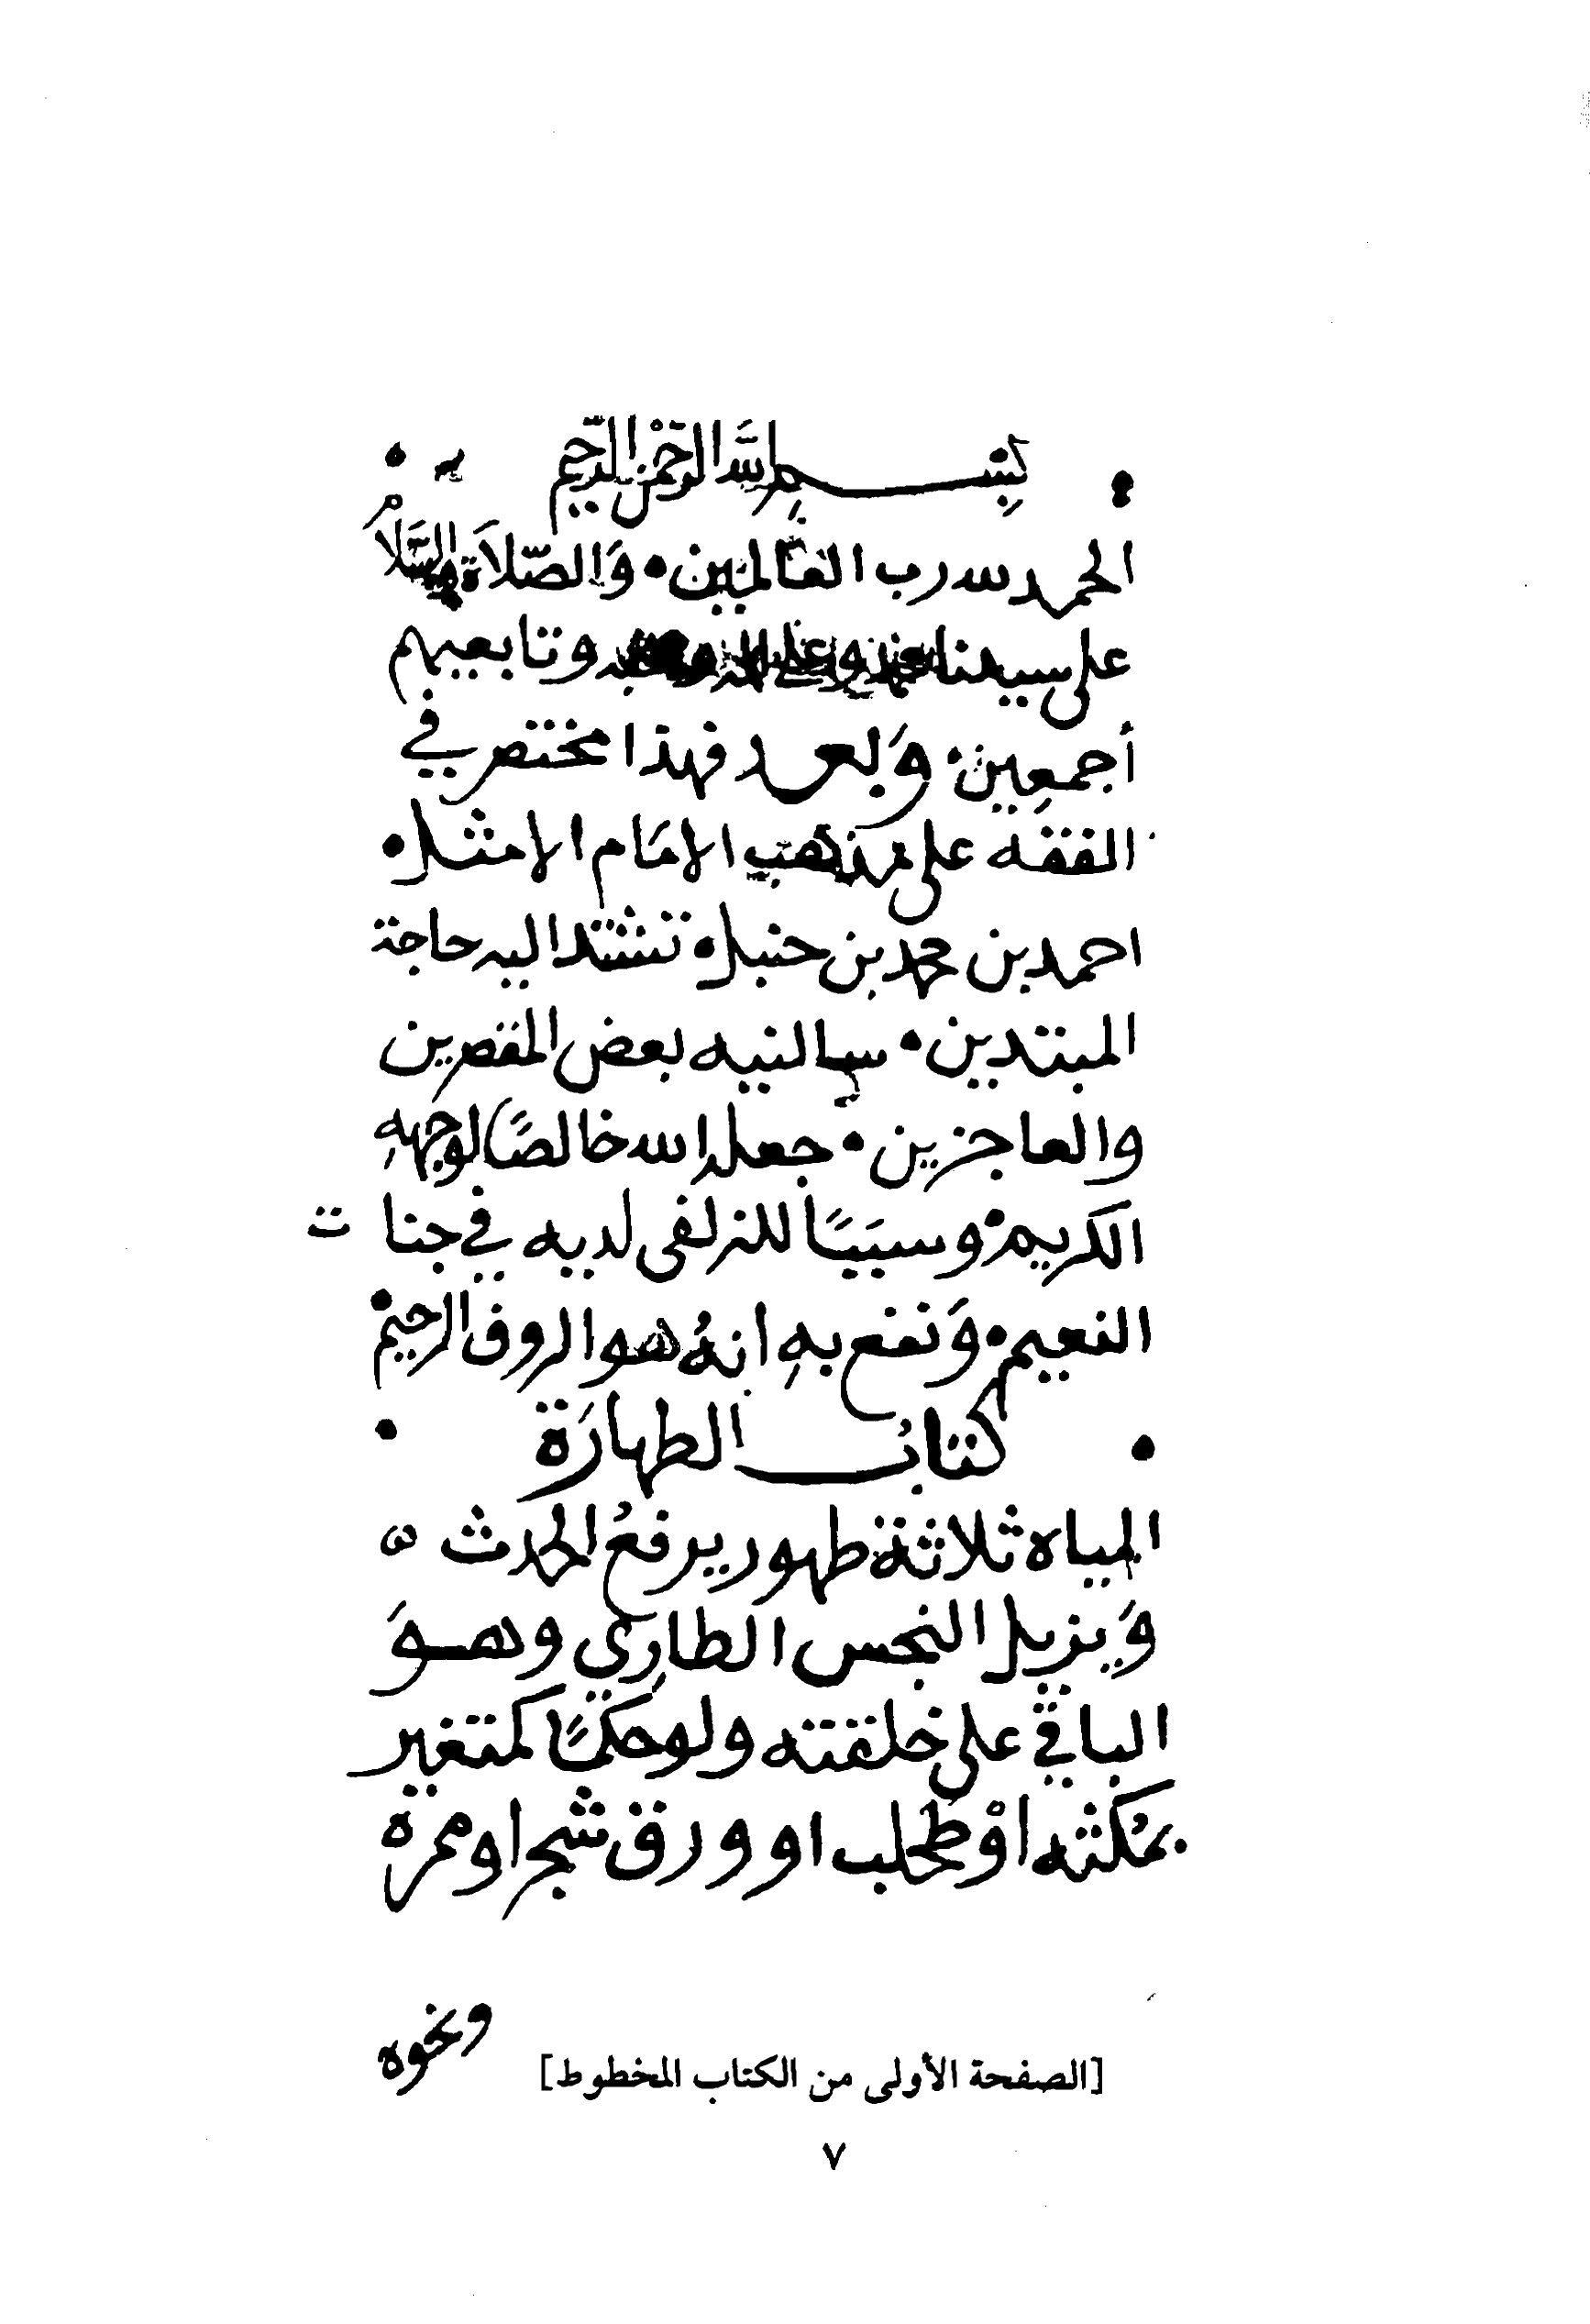 بِسْمِ اللَّهِ الرَّحْمٰنِ الرَّحِيمِ
الحمد لله رب العَالمين • وَالصَّلاَة والسَّلاَمُ
على سيدنا محمد وعلى اله وصحبه وتابعيهم
أجمعِين • وَبعد فهذا مختصر في
الفقه على مذهب الامَام الامثل •
احمد بن محمد بن حنبل • تشتد اليه حاجة
المبتدين • سالنيه بعض المقصرين
والعاجزين • جعله الله خالصًا لوجههِ
الكَريم • وسبَبًا للزلفى لديه في جنات
النعيم • وَنفع بهِ انهُ هو الروف الرحيم •
• كتابُ الطهارَة •
المياه ثلاثة طهور يرفعُ الحدث
وَيزيل النجس الطارِي وهوَ
الباقي على خلقته ولو حكمًا كمتغير
بمُكثه اوْ طحلب او ورق شجر او ممره
ونحوه
[الصفحة الأولى من الكتاب المخطوط]
٧